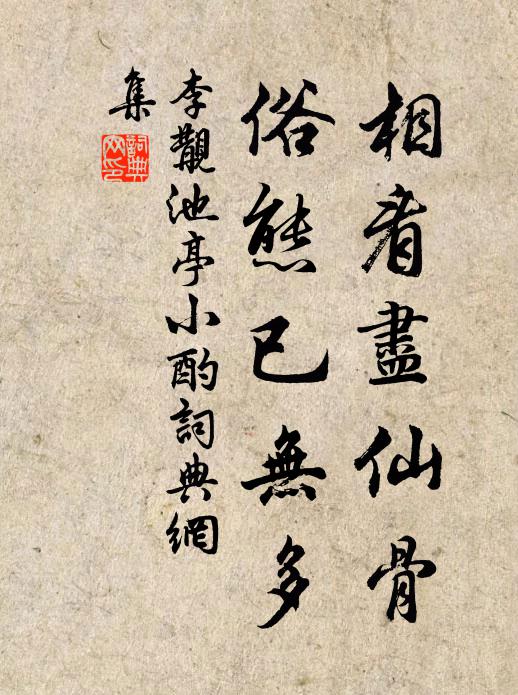 相看盡仙骨
俗態已無多
李觀池亭小酌詞典網
集
詞典
网印